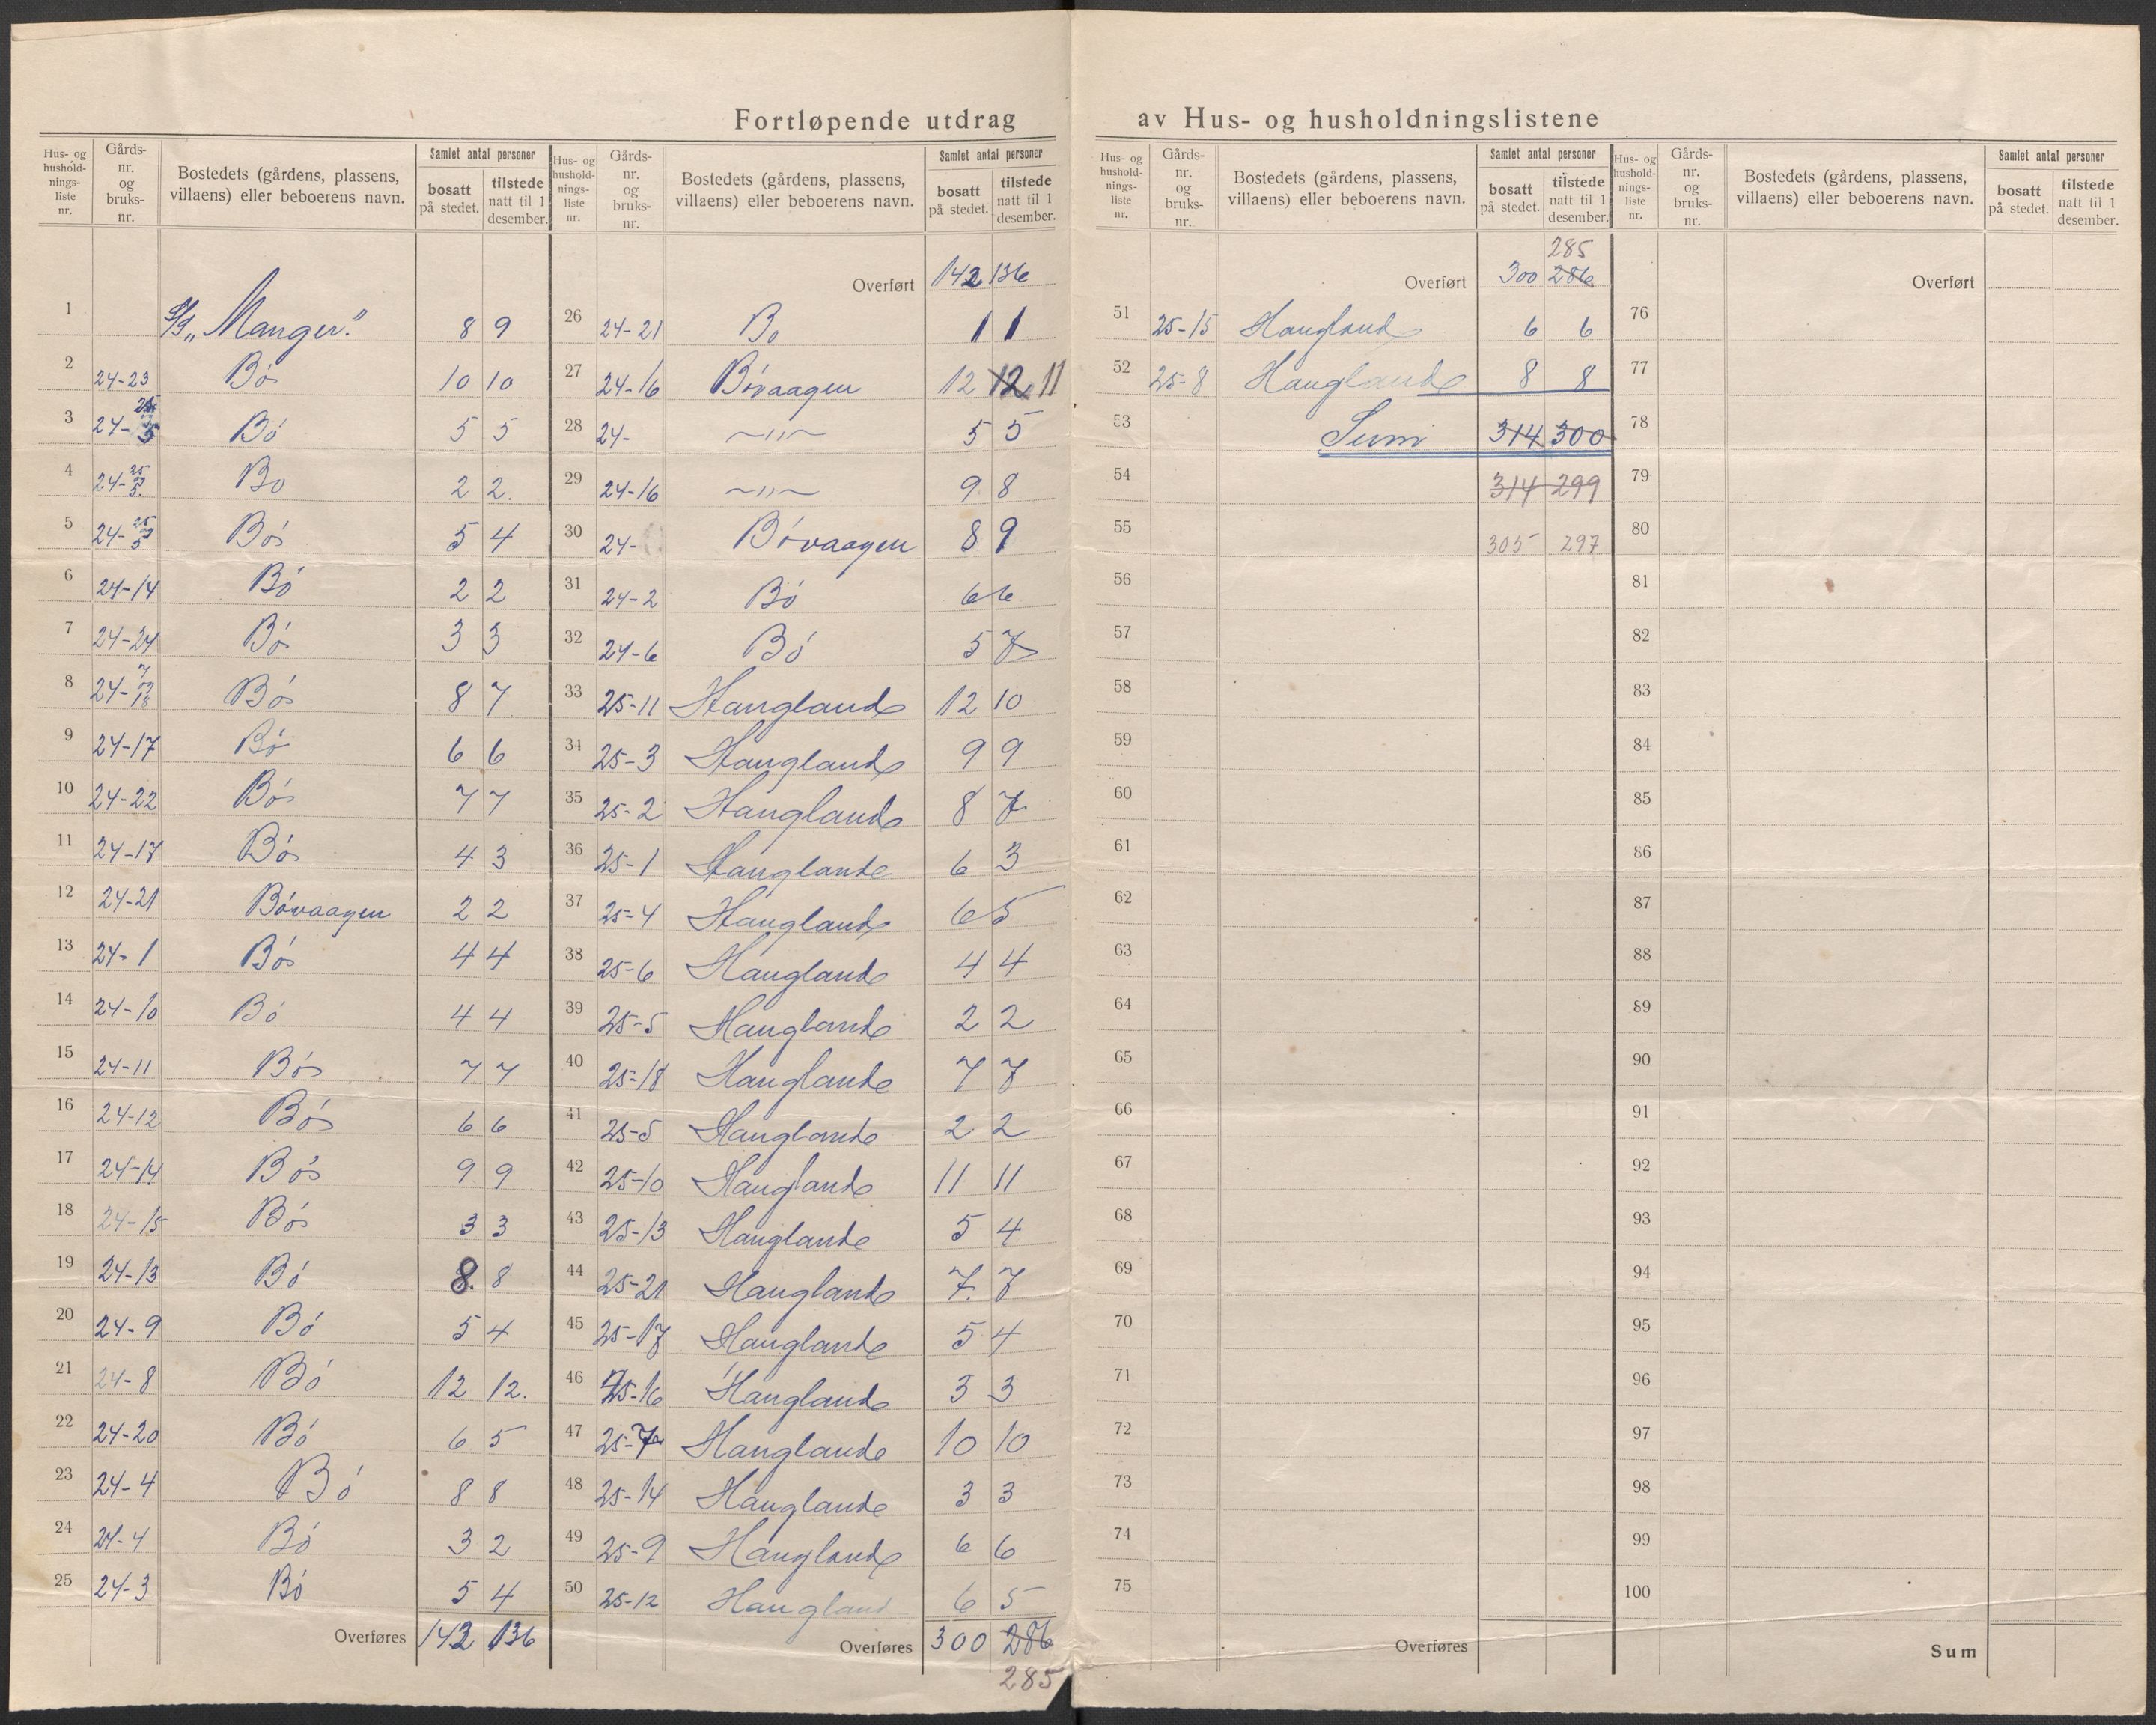 Fortløpende utdrag av Hus- og husholdningslistene
Hus- og hushold-nings-liste nr. | Gårds-nr. og bruks-nr. | Bostedets (gårdens, plassens, villaens) eller beboerens navn. | Samlet antal personer | bosatt på stedet. | tilstede natt til 1 desember.
1 S/S „Manger." 8 9
2 24-23 Bø 10 10
3 24-25 5 Bø 5 5
4 24-25 5. Bø 2 2.
5 24-25 5 Bø 5 4
6 24-14 Bø 2 2
7 24-24 Bø 3 3
8 24-7 18 Bø 8 7
9 24-17 Bø 6 6
10 24-22 Bø 7 7
11 24-17 Bø 4 3
12 24-21 Bøvaagen 2 2
13 24-1 Bø 4 4
14 24-10 Bø 4 4
15 24-11 Bø 7 7
16 24-12 Bø 6 6
17 24-14 Bø 9 9
18 24-15 Bø 3 3
19 24-13 Bø 8. 8
20 24-9 Bø 5 4
21 24-8 Bø 12 12.
22 24-20 Bø 6 5
23 24-4 Bø 8 8
24 24-4 Bø 3 2
25 24-3 Bø 5 4
Overføres 142 136
Hus- og hushold-nings-liste nr. | Gårds-nr. og bruks-nr. | Bostedets (gårdens, plassens, villaens) eller beboerens navn. | Samlet antal personer | bosatt på stedet. | tilstede natt til 1 desember.
Overført 142 136
26 24-21 Bø 1 1
27 24-16 Bøvaagen 12 12 11
28 24- —"— 5 5
29 24-16 —"— 9 8
30 24- Bøvaagen 8 9
31 24-2 Bø 6 6
32 24-6 Bø 5 7
33 25-11 Haugland 12 10
34 25-3 Haugland 9 9
35 25-2 Haugland 8 7
36 25-1 Haugland 6 3
37 25-4 Haugland 6 5
38 25-6 Haugland 4 4
39 25-5 Haugland 2 2
40 25-18 Haugland 7 7
41 25-5 Haugland 2 2
42 25-10 Haugland 11 11
43 25-13 Haugland 5 4
44 25-21 Haugland 7. 7
45 25-17 Haugland 5 4
46 25-16 Haugland 3 3
47 25-7 Haugland 10 10
48 25-14 Haugland 3 3
49 25-9 Haugland 6 6
50 25-12 Haugland 6 5
Overføres 300 286
285
Hus- og hushold-nings-liste nr. | Gårds-nr. og bruks-nr. | Bostedets (gårdens, plassens, villaens) eller beboerens navn. | Samlet antal personer | bosatt på stedet. | tilstede natt til 1 desember.
285
Overført 300 286
51 25-15 Haugland 6 6
52 25-8 Haugland 8 8
53 Sum 314 300
54 314 299
55 305 297
56
57
58
59
60
61
62
63
64
65
66
67
68
69
70
71
72
73
74
75
Overføres
Hus- og hushold-nings-liste nr. | Gårds-nr. og bruks-nr. | Bostedets (gårdens, plassens, villaens) eller beboerens navn. | Samlet antal personer | bosatt på stedet. | tilstede natt til 1 desember.
Overført
76
77
78
79
80
81
82
83
84
85
86
87
88
89
90
91
92
93
94
95
96
97
98
99
100
Sum